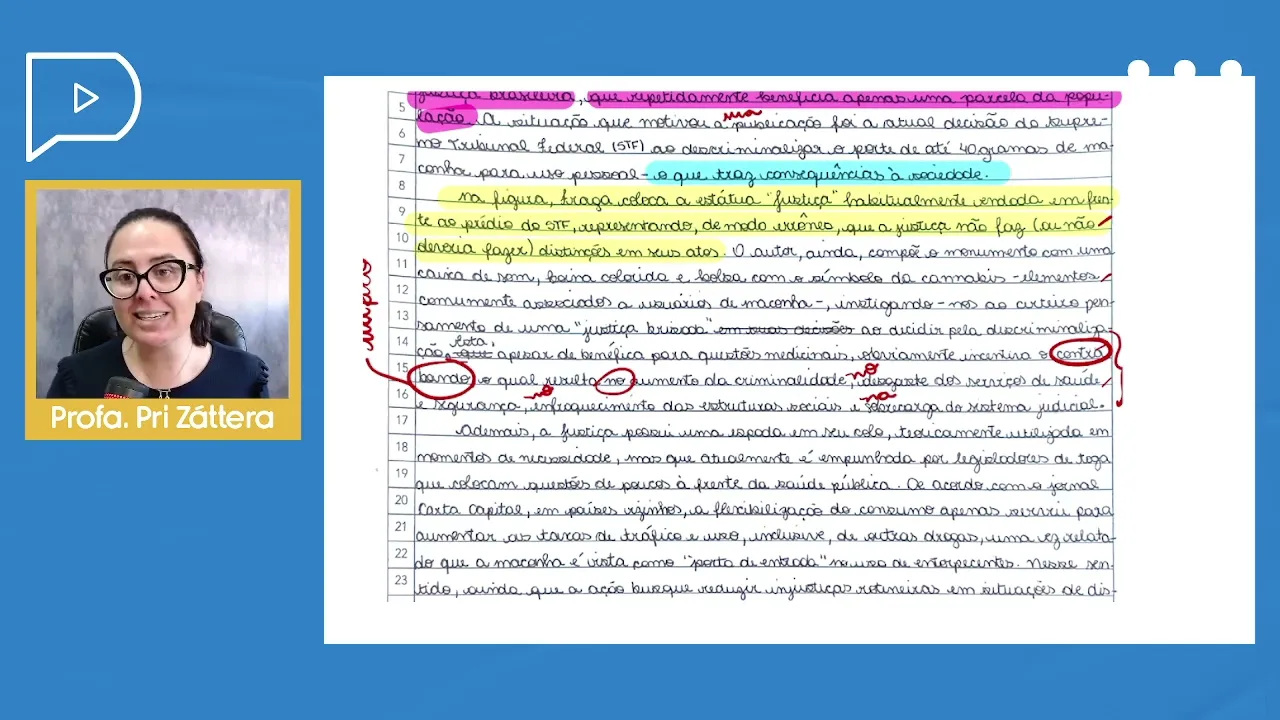 5 justiça brasileira, que repetidamente beneficia apenas uma parcela da popu-
lação. A situação que motivou a sua publicação foi a atual decisão do Supre-
6
mo Tribunal Federal (STF) ao descriminalizar o porte de até 40 gramas de ma-
7
conha para uso pessoal - o que traz consequências à sociedade.
8
Na figura, Fraga coloca a estátua "Justiça" habitualmente vendada em fren-
9
te ao prédio do STF, representando, de modo errôneo, que a justiça não faz (ou não
10
deveria fazer) distinções em seus atos. O autor, ainda, compõe o monumento com uma
11
caixa de som, boina colorida e bolsa com o símbolo da cannabis - elementos
12
comumente associados a usuários de maconha -, instigando-nos ao criterio pen-
13
samento de uma "justiça brisada" em suas decisões ao decidir pela descriminaliza-
14
ção. Esta, que apesar de benéfica para questões medicinais, obviamente incentiva o contra
tráfico
15
bando o qual resulta no aumento da criminalidade, no desgaste dos serviços de saúde
16
e segurança, no enfraquecimento das estruturas sociais e na sobrecarga do sistema judicial.
17
Ademais, a Justiça possui uma espada em seu colo, teoricamente utilizada em
18
momentos de necessidade, mas que atualmente é empunhada por legisladores de toga
19
que colocam questões de poucos à frente da saúde pública. De acordo com o jornal
20
Carta Capital, em países vizinhos, a flexibilização do consumo apenas serviu para
21
aumentar as taxas de tráfico e uso, inclusive, de outras drogas, uma vez relata-
22
do que a maconha é vista como "porta de entrada" no uso de entorpecentes. Nesse sen-
23
tido, ainda que a ação busque reduzir injustiças rotineiras em situações de dis-
Profa. Pri Záttera